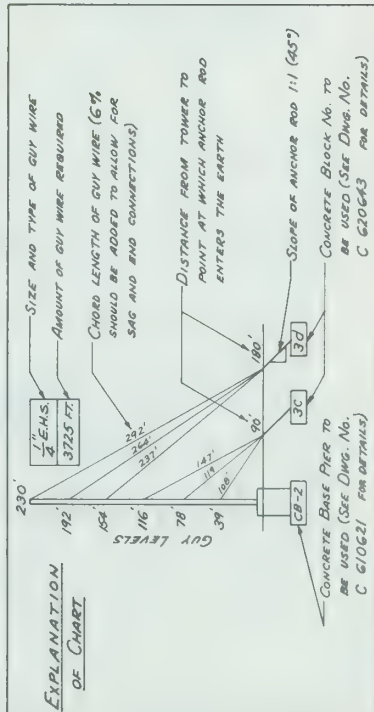 EXPLANATION
OF CHART
1/4" E.H.S.
3725 FT.
SIZE AND TYPE OF GUY WIRE
AMOUNT OF GUY WIRE REQUIRED
CHORD LENGTH OF GUY WIRE (6%
SHOULD BE ADDED TO ALLOW FOR
SAG AND END CONNECTIONS)
DISTANCE FROM TOWER TO
POINT AT WHICH ANCHOR ROD
ENTERS THE EARTH
SLOPE OF ANCHOR ROD 1:1 (45°)
CONCRETE BLOCK NO. TO
BE USED (SEE DWG. NO.
C 620643 FOR DETAILS)
CONCRETE BASE PIER TO
BE USED (SEE DWG. NO.
C 610621 FOR DETAILS)
GUY LEVELS
230'
192'
154'
116'
78'
39'
292'
264'
237'
147'
119'
108'
90'
180'
CB-2
3C
3d